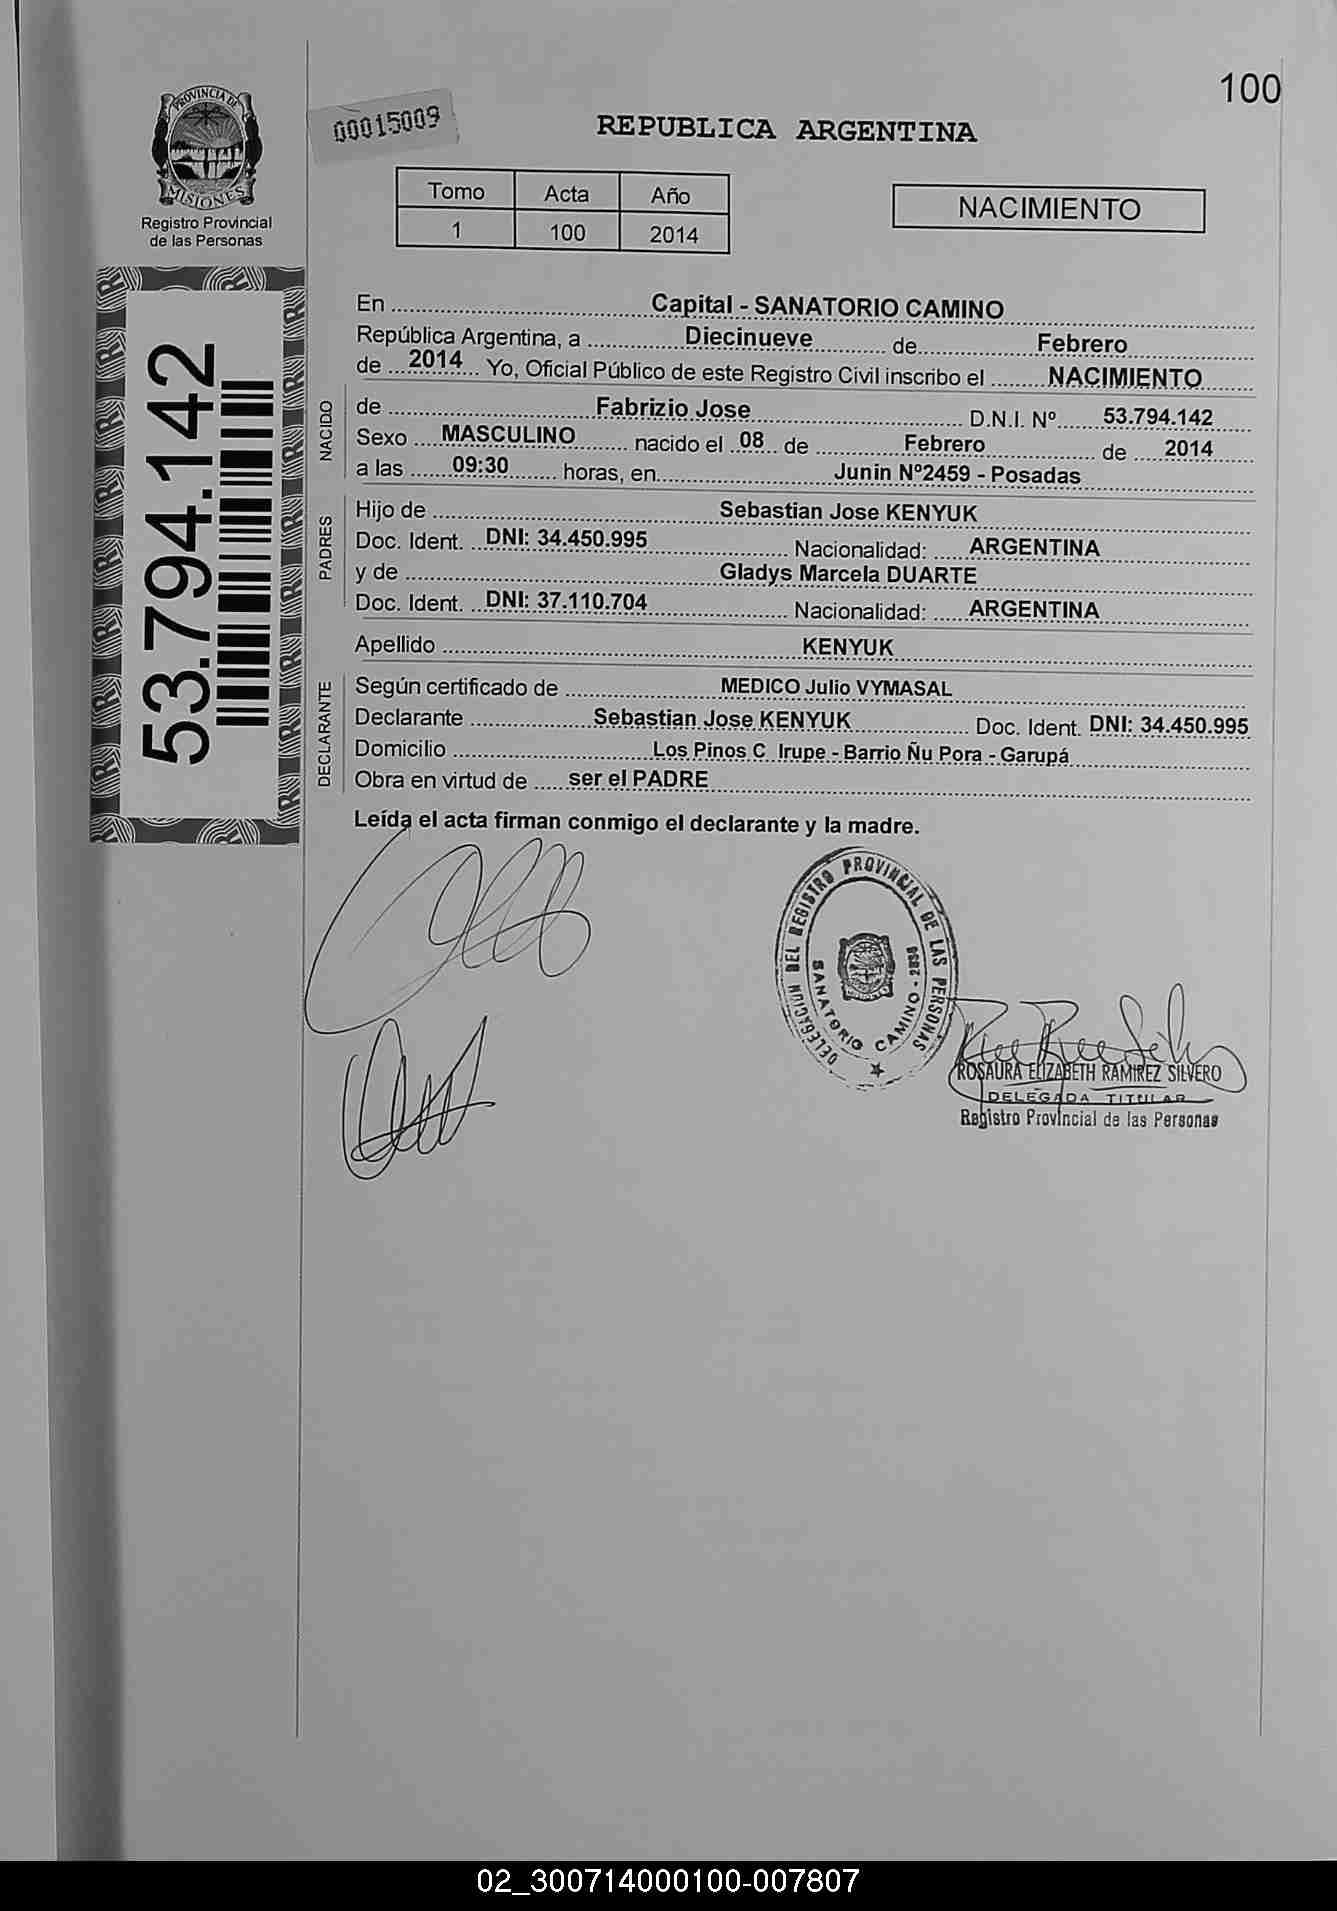 100
PROVINCIA DE
MISIONES
Registro Provincial
de las Personas
00015009
REPUBLICA ARGENTINA
Tomo Acta Año
1 100 2014
NACIMIENTO
53.794.142
En Capital - SANATORIO CAMINO
República Argentina, a Diecinueve de Febrero
de 2014 Yo, Oficial Público de este Registro Civil inscribo el NACIMIENTO
NACIDO
de Fabrizio Jose D.N.I. Nº 53.794.142
Sexo MASCULINO nacido el 08 de Febrero de 2014
a las 09:30 horas, en Junin Nº2459 - Posadas
PADRES
Hijo de Sebastian Jose KENYUK
Doc. Ident. DNI: 34.450.995 Nacionalidad: ARGENTINA
y de Gladys Marcela DUARTE
Doc. Ident. DNI: 37.110.704 Nacionalidad: ARGENTINA
Apellido KENYUK
DECLARANTE
Según certificado de MEDICO Julio VYMASAL
Declarante Sebastian Jose KENYUK Doc. Ident. DNI: 34.450.995
Domicilio Los Pinos C Irupe - Barrio Ñu Pora - Garupá
Obra en virtud de ser el PADRE
Leída el acta firman conmigo el declarante y la madre.
DELEGACION DEL REGISTRO PROVINCIAL DE LAS PERSONAS
SANATORIO CAMINO
ROSAURA ELIZABETH RAMIREZ SILVERO
DELEGADA TITULAR
Registro Provincial de las Personas
02_300714000100-007807